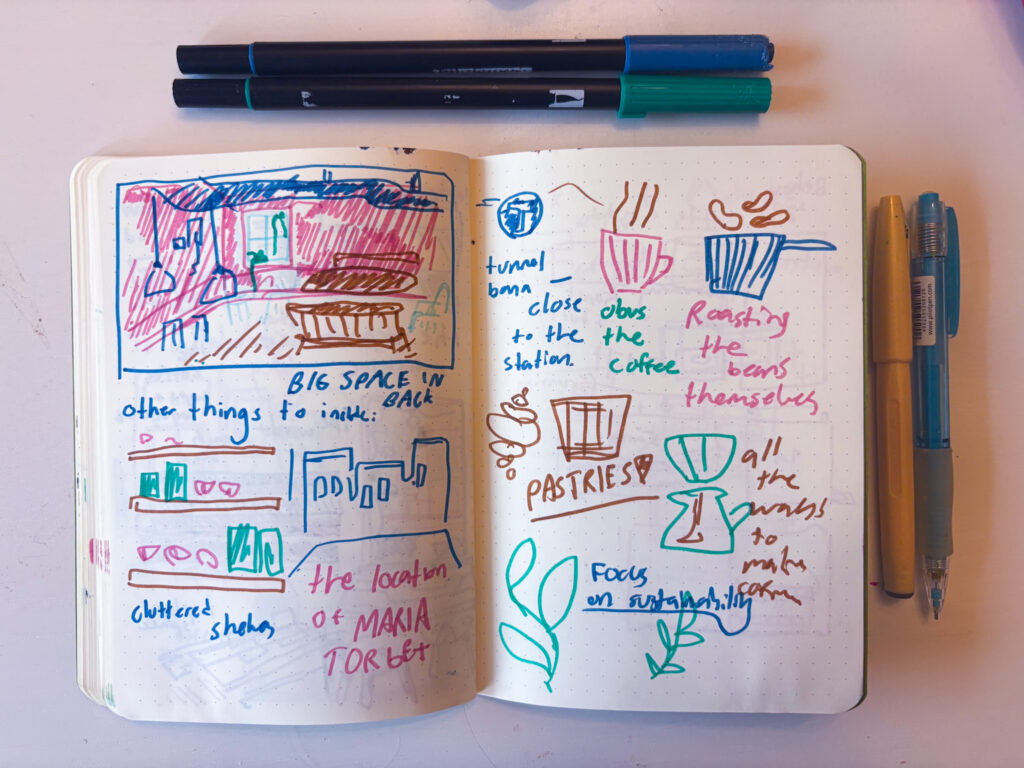 BIG SPACE IN
BACK
other things to
cluttered
shelves
the location
of MARIA
TORGET
tunnel
bana
close
to the
station.
obvs
the
coffee
Roasting
the
beans
themselves
PASTRIES
all
the
ways
to
make
Focus
on sustainability
www.pilotpen.com